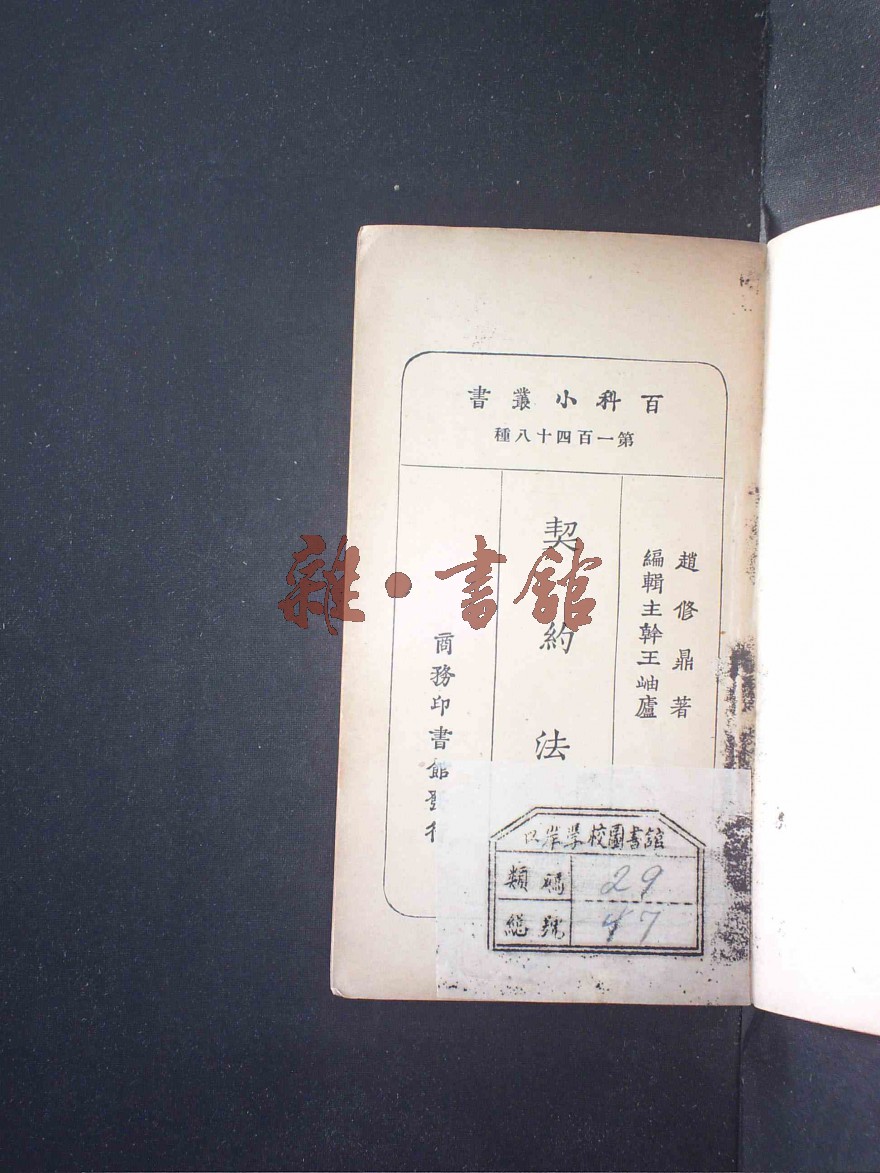 百科小叢書
第一百四十八種
趙修鼎著
編輯主幹王岫廬
契約法
商務印書館發行
雜·書館
口岸學校圖書館
類碼 29
總號 47